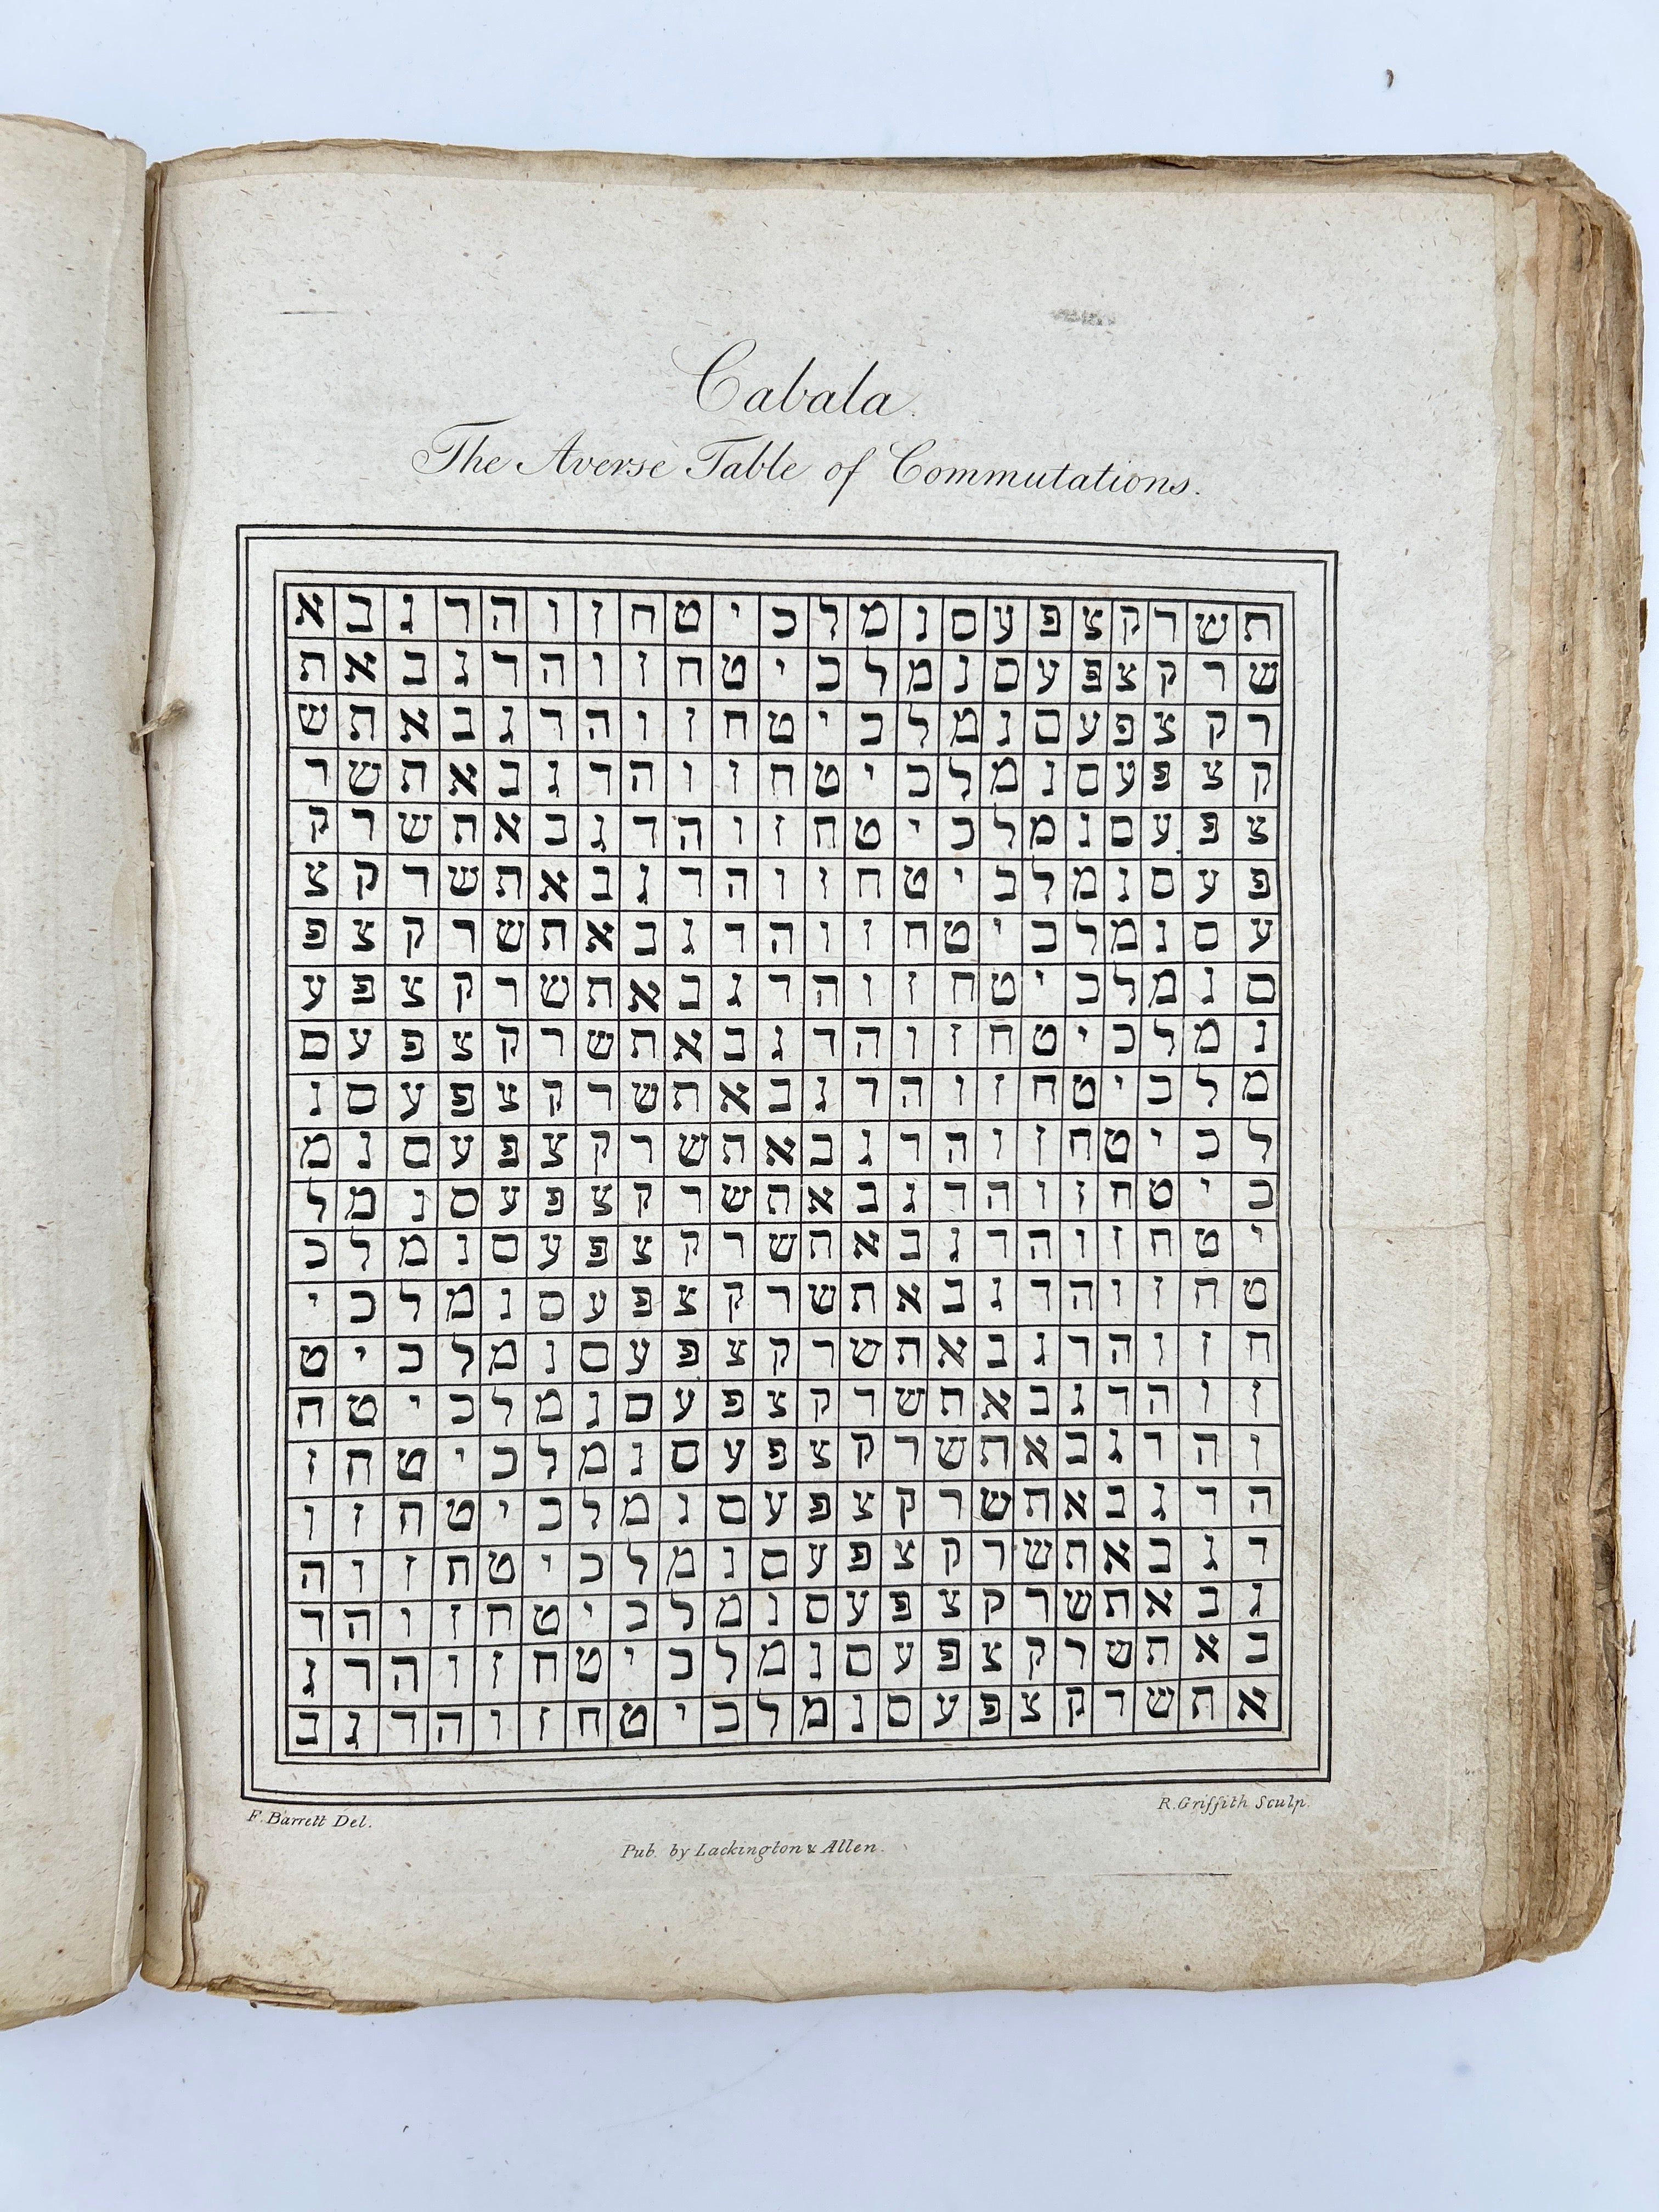 Cabala.
The Averse Table of Commutations.
ת ש ר ק צ פ ע ס נ מ ל כ י ט ח ז ו ה ד ג ב א
ש ר ק צ פ ע ס נ מ ל כ י ט ח ז ו ה ד ג ב א ת
ר ק צ פ ע ס נ מ ל כ י ט ח ז ו ה ד ג ב א ת ש
ק צ פ ע ס נ מ ל כ י ט ח ז ו ה ד ג ב א ת ש ר
צ פ ע ס נ מ ל כ י ט ח ז ו ה ד ג ב א ת ש ר ק
פ ע ס נ מ ל כ י ט ח ז ו ה ד ג ב א ת ש ר ק צ
ע ס נ מ ל כ י ט ח ז ו ה ד ג ב א ת ש ר ק צ פ
ס נ מ ל כ י ט ח ז ו ה ד ג ב א ת ש ר ק צ פ ע
נ מ ל כ י ט ח ז ו ה ד ג ב א ת ש ר ק צ פ ע ס
מ ל כ י ט ח ז ו ה ד ג ב א ת ש ר ק צ פ ע ס נ
ל כ י ט ח ז ו ה ד ג ב א ת ש ר ק צ פ ע ס נ מ
כ י ט ח ז ו ה ד ג ב א ת ש ר ק צ פ ע ס נ מ ל
י ט ח ז ו ה ד ג ב א ת ש ר ק צ פ ע ס נ מ ל כ
ט ח ז ו ה ד ג ב א ת ש ר ק צ פ ע ס נ מ ל כ י
ח ז ו ה ד ג ב א ת ש ר ק צ פ ע ס נ מ ל כ י ט
ז ו ה ד ג ב א ת ש ר ק צ פ ע ס נ מ ל כ י ט ח
ו ה ד ג ב א ת ש ר ק צ פ ע ס נ מ ל כ י ט ח ז
ה ד ג ב א ת ש ר ק צ פ ע ס נ מ ל כ י ט ח ז ו
ד ג ב א ת ש ר ק צ פ ע ס נ מ ל כ י ט ח ז ו ה
ג ב א ת ש ר ק צ פ ע ס נ מ ל כ י ט ח ז ו ה ד
ב א ת ש ר ק צ פ ע ס נ מ ל כ י ט ח ז ו ה ד ג
א ת ש ר ק צ פ ע ס נ מ ל כ י ט ח ז ו ה ד ג ב
F. Barrett Del.
R. Griffith Sculp.
Pub. by Lackington & Allen.